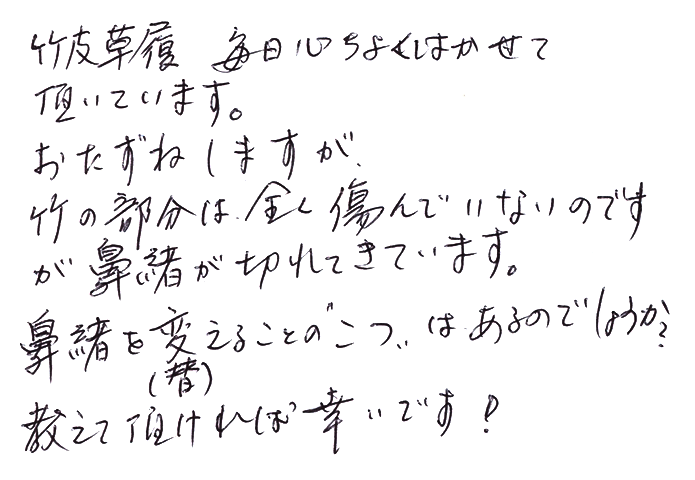 竹皮草履 毎日心ちよくはかせて
頂いています。
おたずねしますが、
竹の部分は全く傷んでいないのです
が鼻緒が切れてきています。
鼻緒を変えることの"こつ"はあるのでしょうか?
(替)
教えて頂ければ幸いです!